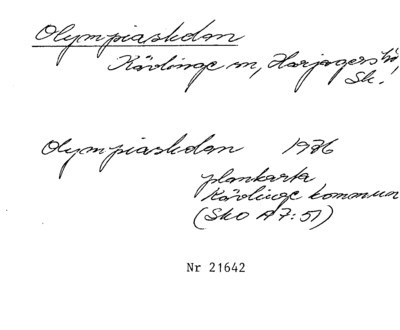 Olympiaskolan
Kävlinge sn, Harjagers hd,
Sk.
Olympiaskolan 1976
plankarta
Kävlinge kommun
(Sko A7:51)
Nr 21642